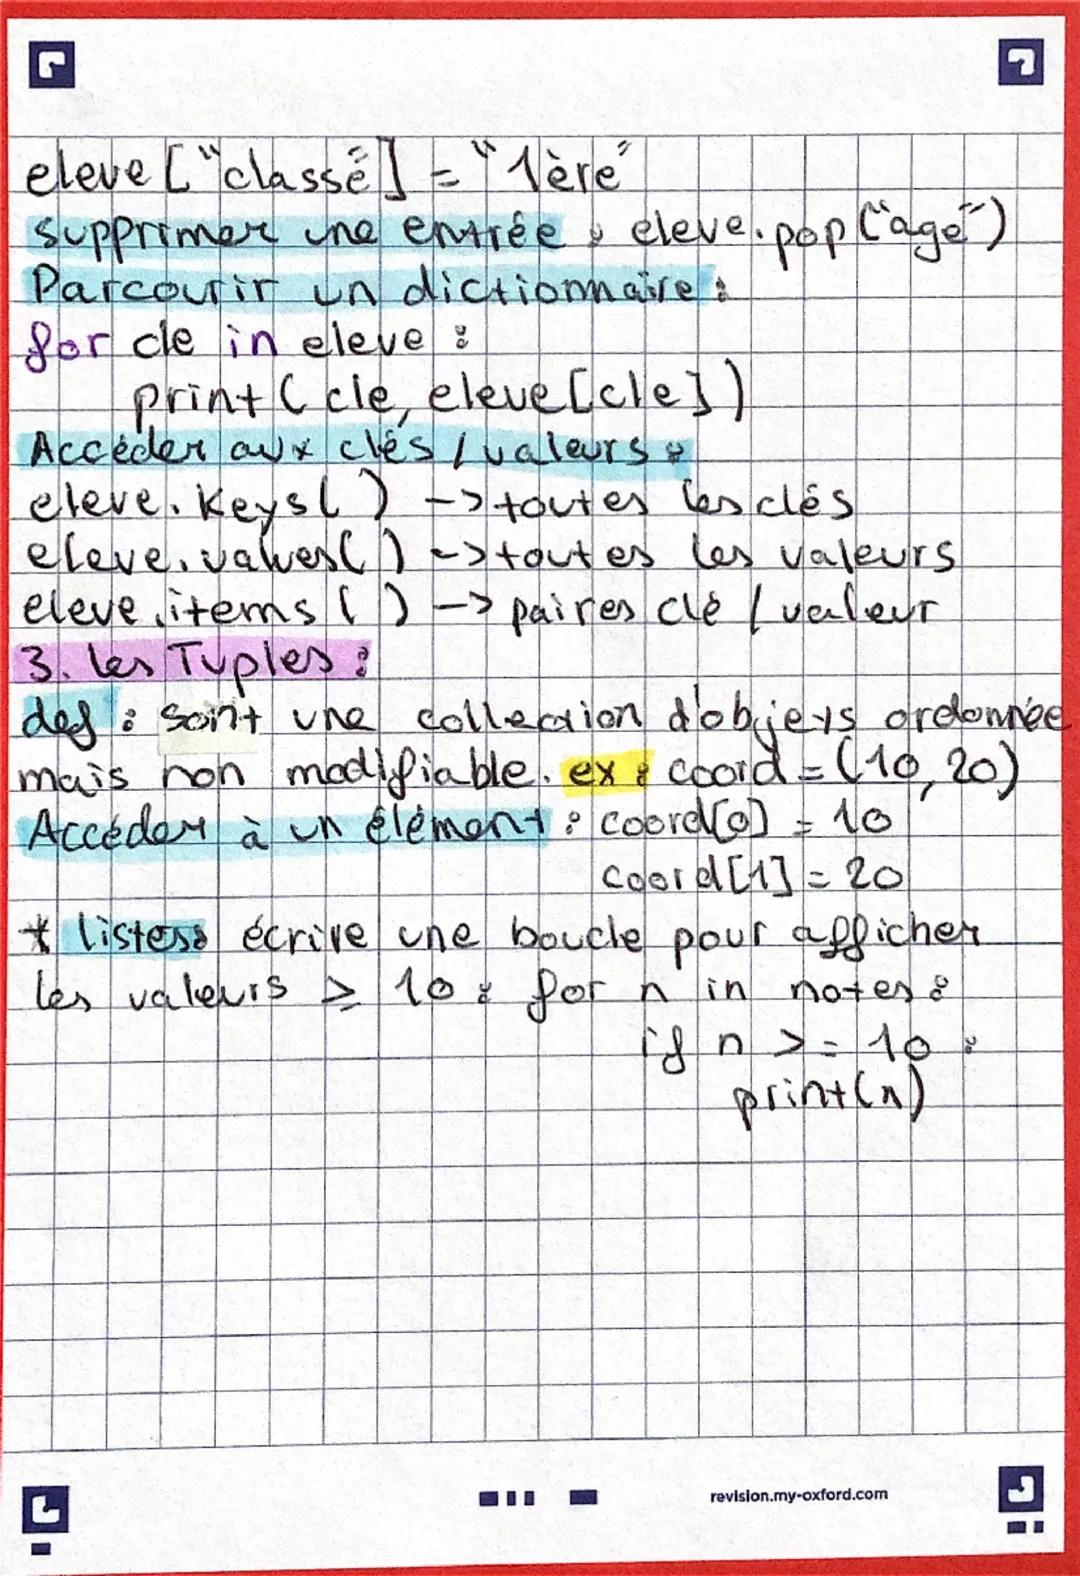 eleve ["classe"] = "1ère"
supprimer une entrée : eleve.pop("age")
Parcourir un dictionnaire :
for cle in eleve :
print ( cle, eleve[cle])
Accéder aux clés / valeurs :
eleve. Keys( ) -> toutes les clés
eleve. values( ) -> toutes les valeurs
eleve .items ( ) -> paires clé / valeur
3. les Tuples :
def : sont une collection d'objets ordonnée
mais non modifiable. ex : coord = (10, 20)
Accéder à un élément : coord[0] = 10
coord[1] = 20
* listes : écrire une boucle pour afficher
les valeurs ≥ 10 : for n in notes :
if n >= 10 :
print(n)
revision.my-oxford.com